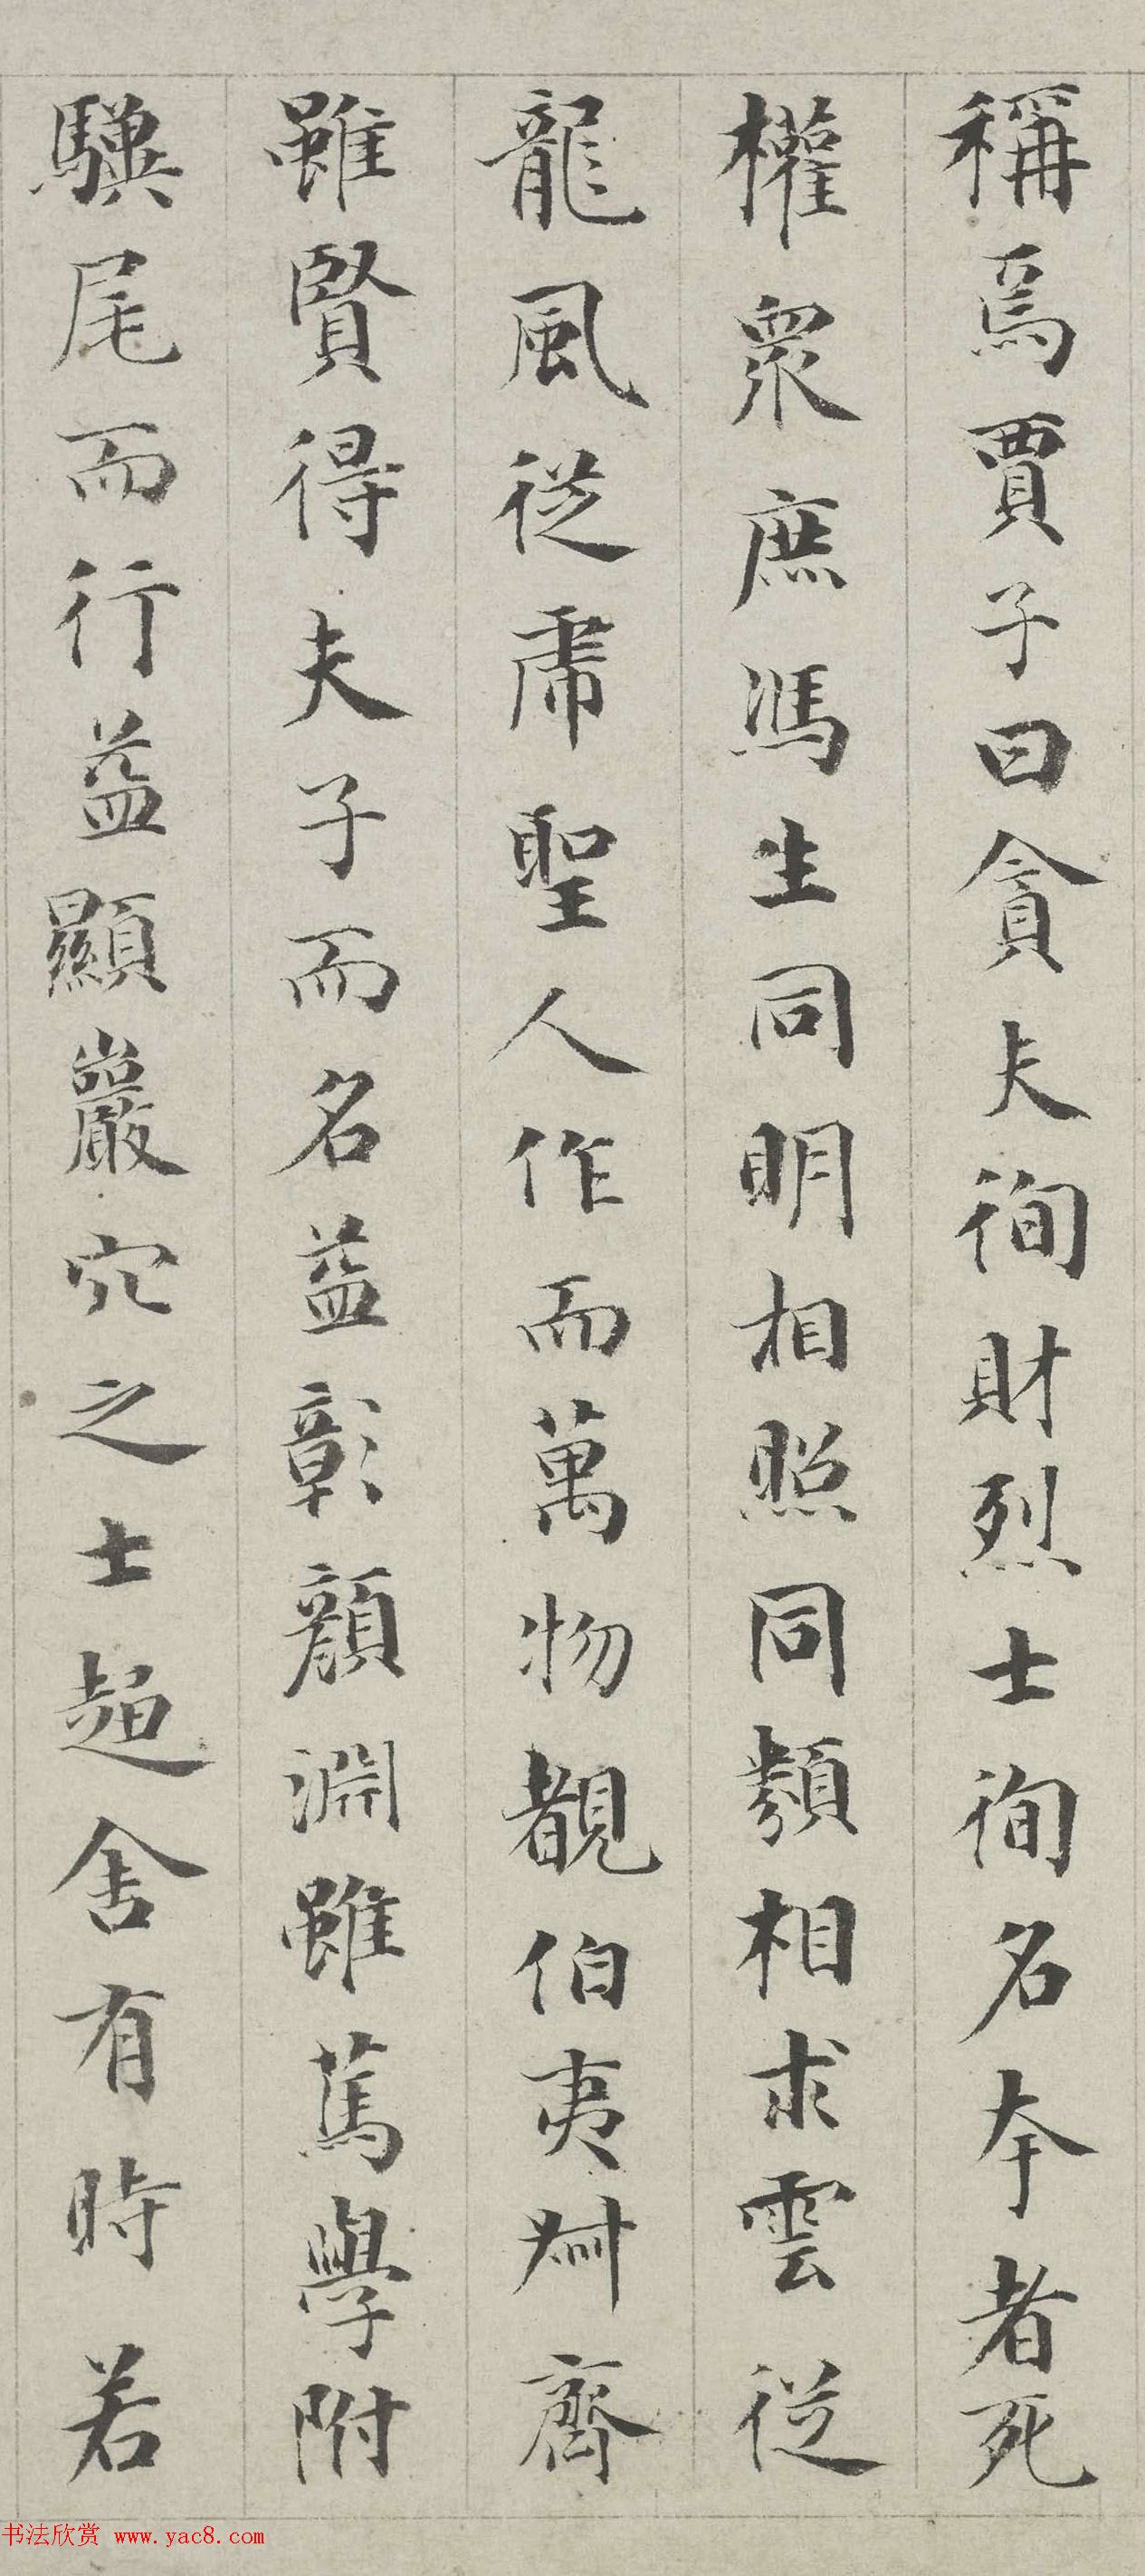 稱焉賈子曰貪夫徇財烈士徇名夲者死
權衆庶馮生同明相照同類相求雲從
龍風從虎聖人作而萬物覩伯夷叔齊
雖賢得夫子而名益彰顔淵雖篤學附
驥尾而行益顯巖穴之士趨舍有時若
书法欣赏 www.yac8.com